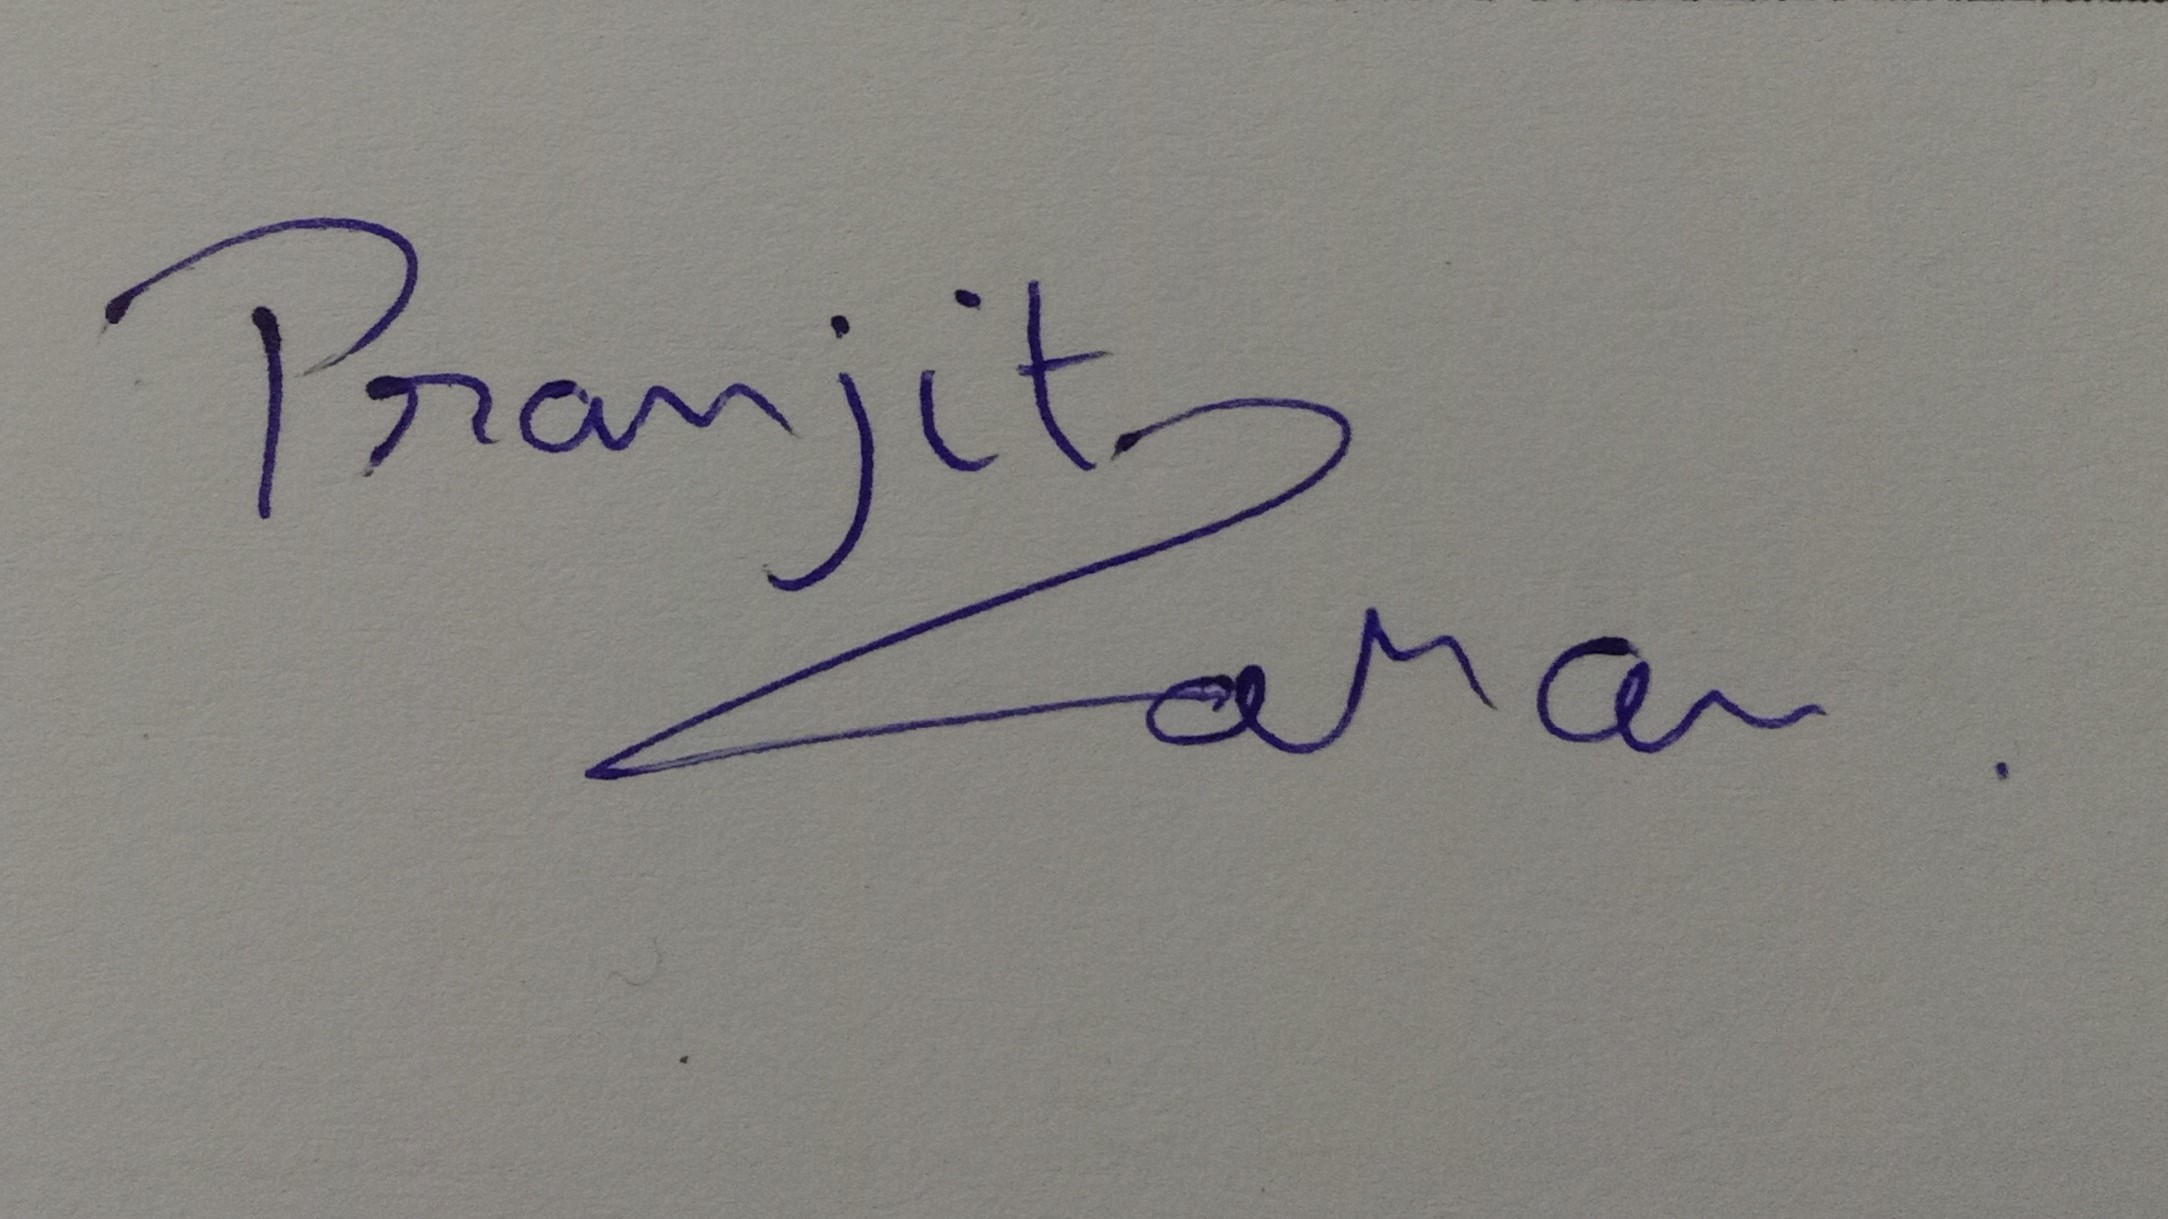 Pranjit
Zaman.